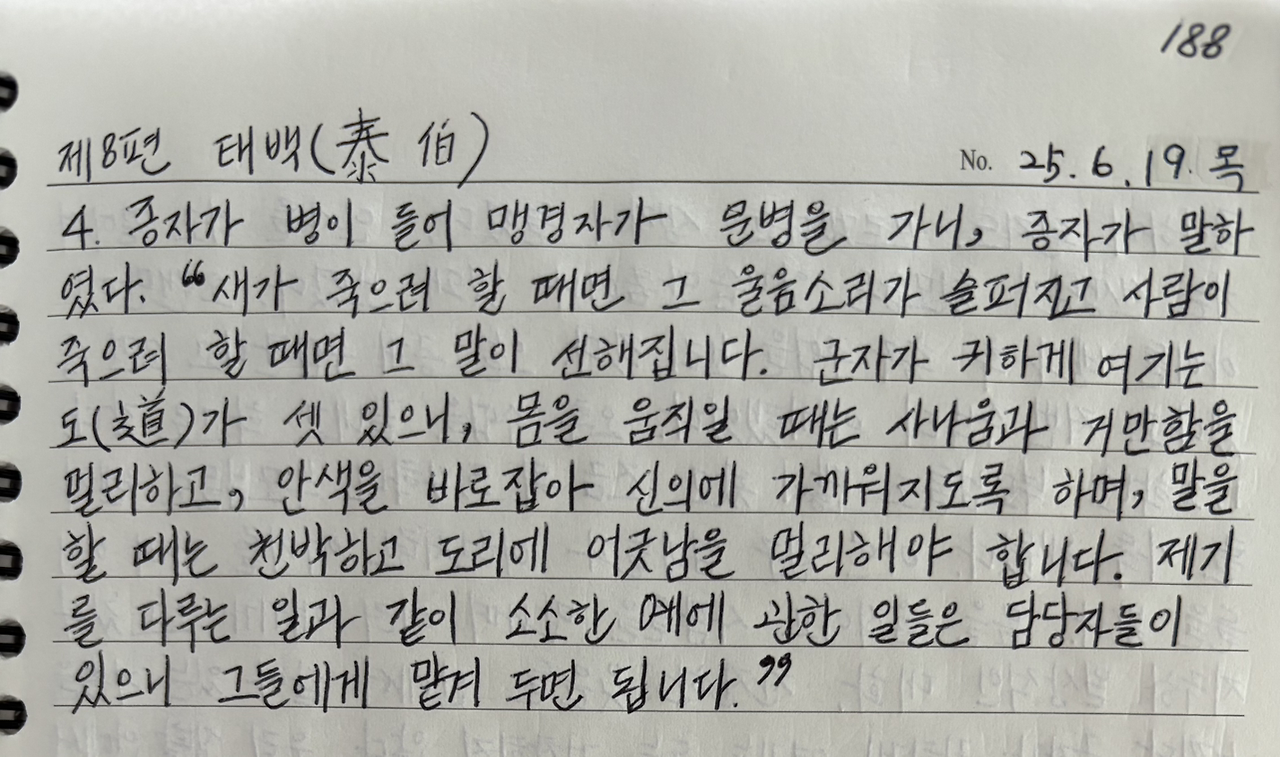 188
제8편 태백(泰伯) No. 25.6.19. 목
4. 증자가 병이 들어 맹경자가 문병을 가니, 증자가 말하
였다. “새가 죽으려 할 때면 그 울음소리가 슬퍼지고 사람이
죽으려 할 때면 그 말이 선해집니다. 군자가 귀하게 여기는
도(道)가 셋 있으니, 몸을 움직일 때는 사나움과 거만함을
멀리하고, 안색을 바로잡아 신의에 가까워지도록 하며, 말을
할 때는 천박하고 도리에 어긋남을 멀리해야 합니다. 제기
를 다루는 일과 같이 소소한 예에 관한 일들은 담당자들이
있으니 그들에게 맡겨 두면 됩니다.”